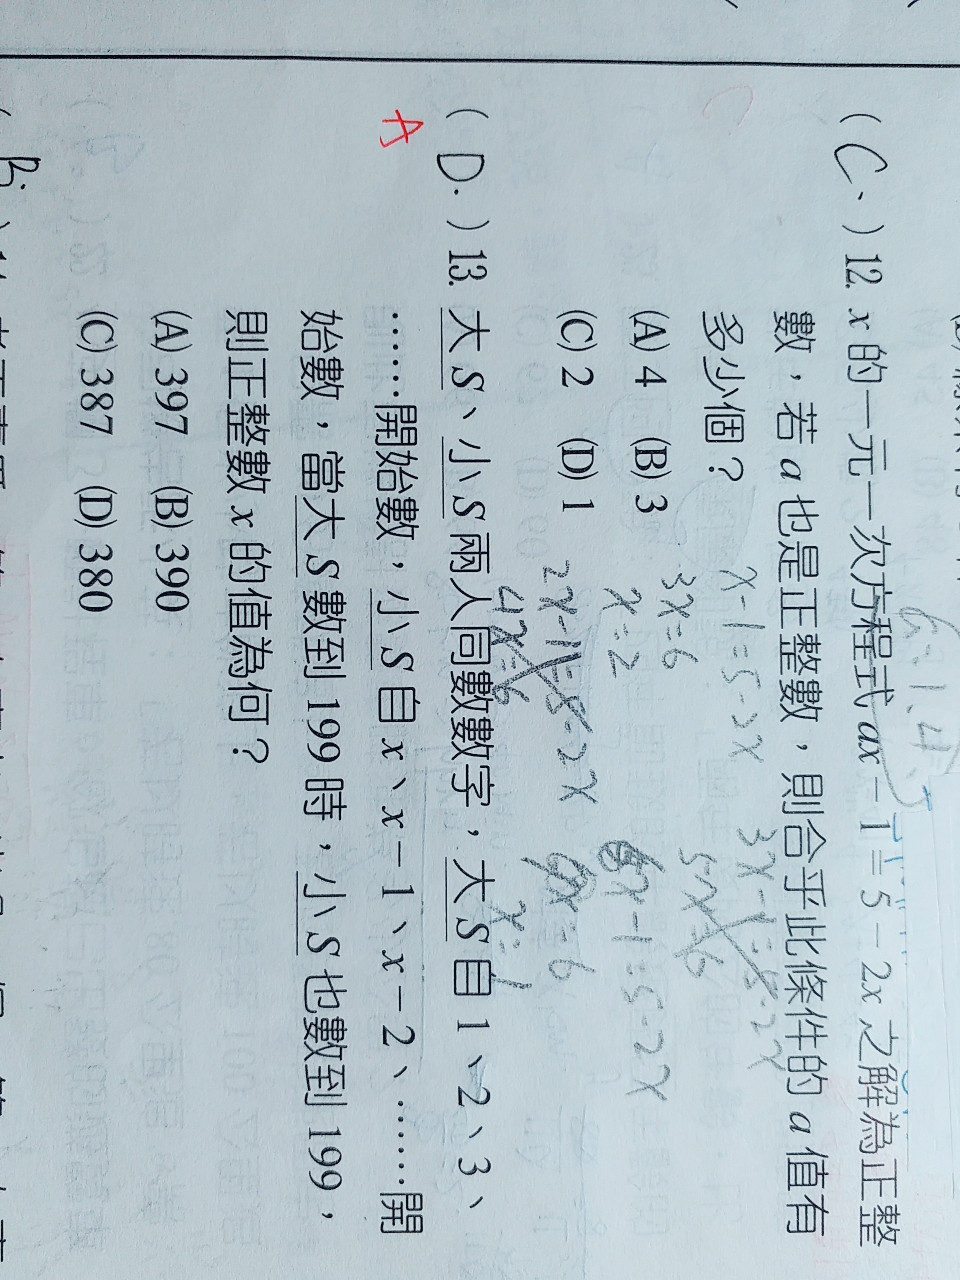 ( C、) 12. x 的一元一次方程式 ax－1＝5－2x 之解為正整
數，若 a 也是正整數，則合乎此條件的 a 值有
多少個？
(A) 4 (B) 3
(C) 2 (D) 1
x-1=5-2x
3x=6
x=2
3x-1=5-2x
5x=6
2x-1=5-2x
4x=6
6x=6
x=1
( D. ) 13. 大S、小S兩人同數數字，大S自 1、2、3、
A
……開始數，小S自 x、x－1、x－2、……開
始數，當大S數到 199 時，小S也數到 199，
則正整數 x 的值為何？
(A) 397 (B) 390
(C) 387 (D) 380